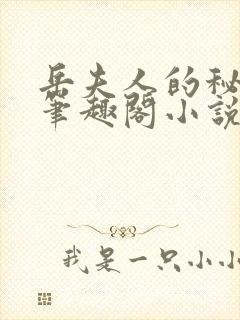 岳夫人的秘
笔趣阁小说
我是一只小小